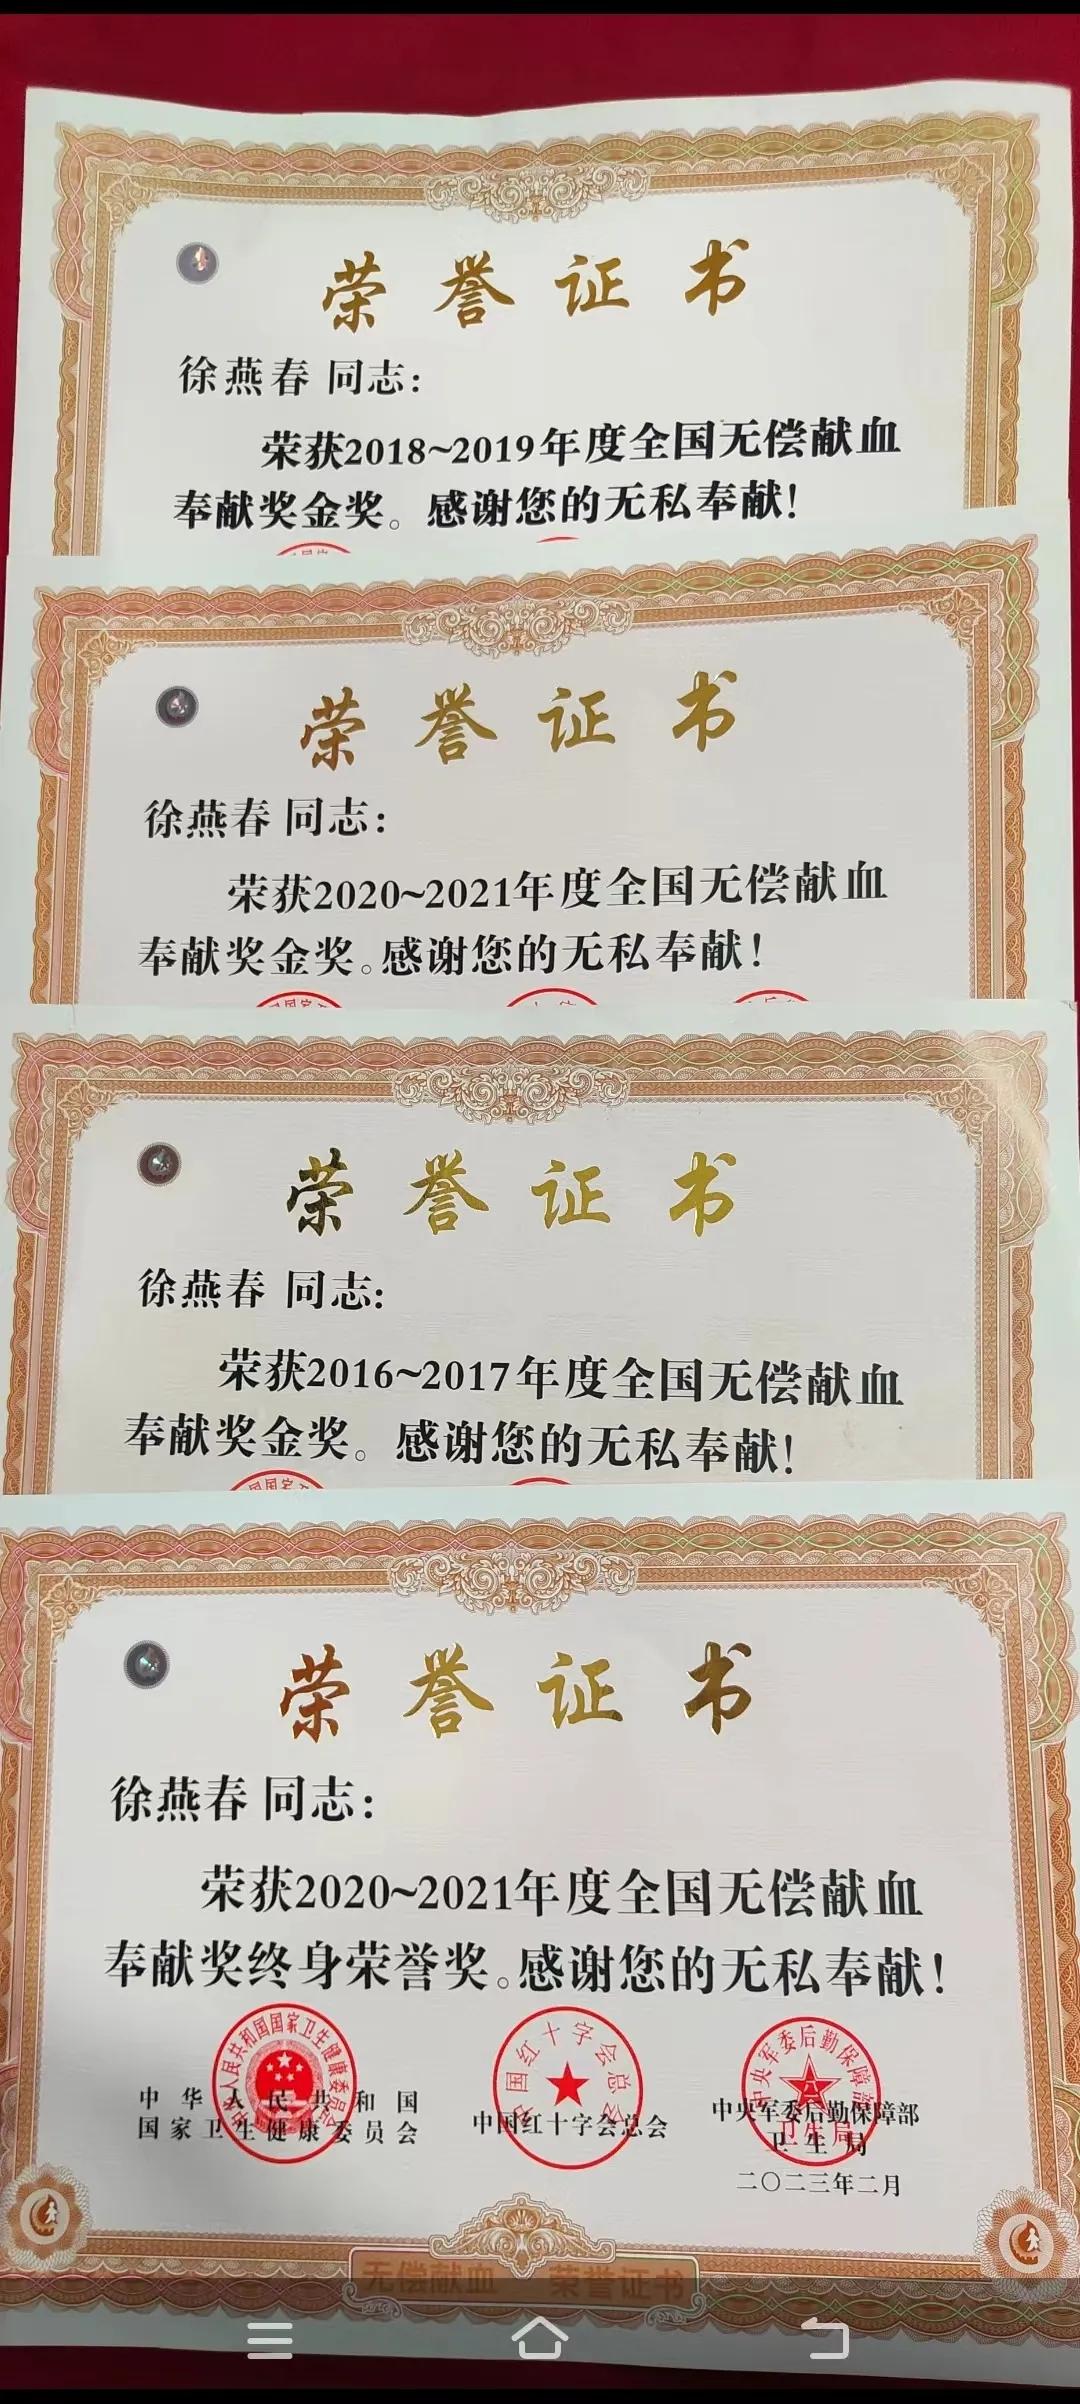 荣誉证书
徐燕春 同志：
荣获2018~2019年度全国无偿献血
奉献奖金奖。感谢您的无私奉献！
荣誉证书
徐燕春 同志：
荣获2020~2021年度全国无偿献血
奉献奖金奖。感谢您的无私奉献！
荣誉证书
徐燕春 同志：
荣获2016~2017年度全国无偿献血
奉献奖金奖。感谢您的无私奉献！
荣誉证书
徐燕春 同志：
荣获2020~2021年度全国无偿献血
奉献奖终身荣誉奖。感谢您的无私奉献！
中华人民共和国国家卫生健康委员会
中国红十字会总会
中央军委后勤保障部
卫生局
中华人民共和国
国家卫生健康委员会
中国红十字会总会
中央军委后勤保障部
卫生局
二〇二三年二月
无偿献血 荣誉证书